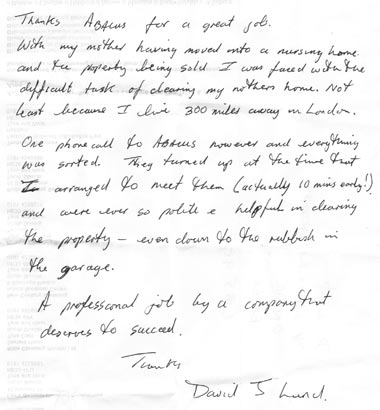 Thanks ABACUS for a great job.
With my mother having moved into a nursing home
and the property being sold I was faced with the
difficult task of clearing my mothers home. Not
least because I live 300 miles away in London.
One phone call to ABACUS however and everything
was sorted. They turned up at the time that
I arranged to meet them (actually 10 mins early!)
and were ever so polite & helpful in clearing
the property – even down to the rubbish in
the garage.
A professional job by a company that
deserves to succeed.
Thanks
David J Lund.